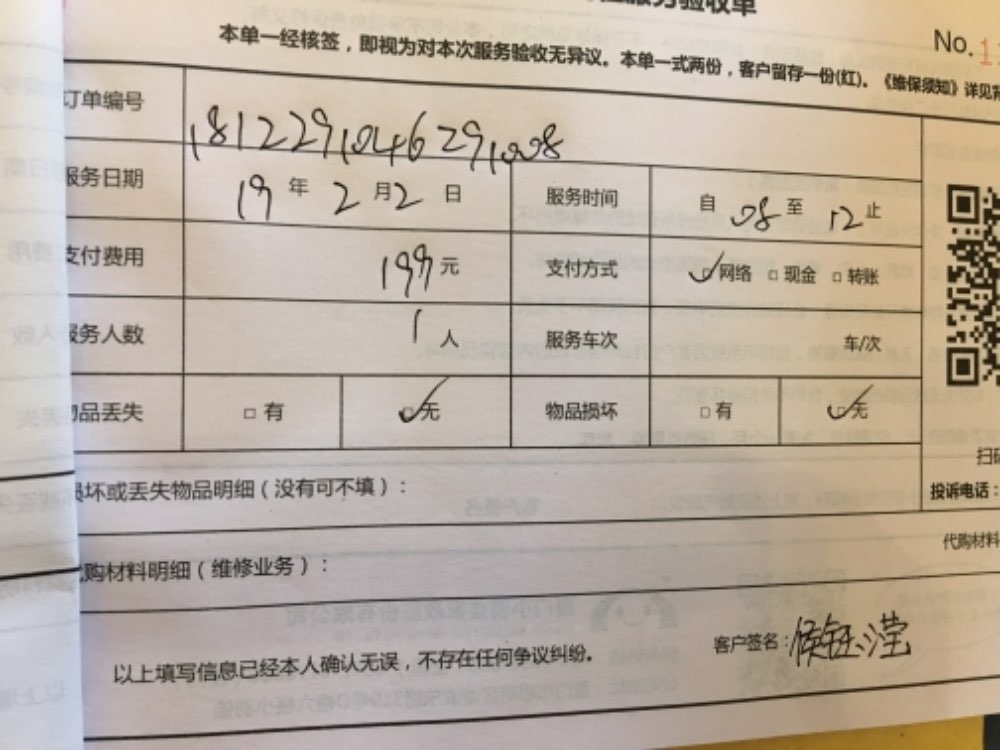 服务验收单
本单一经核签，即视为对本次服务验收无异议。本单一式两份，客户留存一份(红)。《维保须知》详见背
No. 1
订单编号 1812291046291008
服务日期 19 年 2 月 2 日 服务时间 自 08 至 12 止
支付费用 199 元 支付方式 网络 现金 转账
服务人数 1 人 服务车次 车/次
物品丢失 有 无 物品损坏 有 无
扫码
损坏或丢失物品明细（没有可不填）：
投诉电话：
代购材料明细（维修业务）：
代购材料
以上填写信息已经本人确认无误，不存在任何争议纠纷。
客户签名：侯钰滢